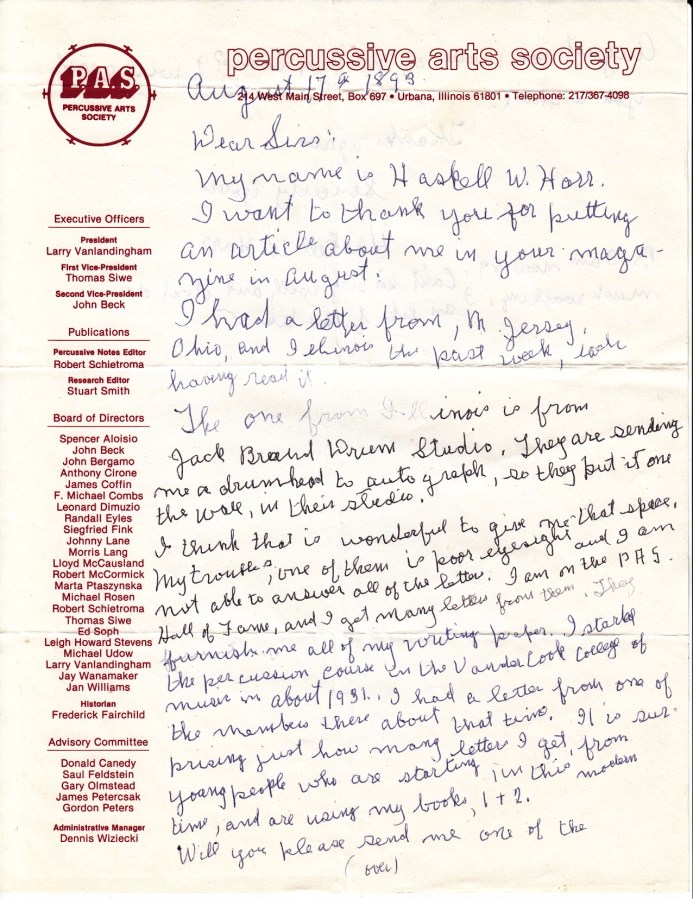 P.A.S.
PERCUSSIVE ARTS
SOCIETY
percussive arts society
214 West Main Street, Box 697 • Urbana, Illinois 61801 • Telephone: 217/367-4098
Executive Officers
President
Larry Vanlandingham
First Vice-President
Thomas Siwe
Second Vice-President
John Beck
Publications
Percussive Notes Editor
Robert Schietroma
Research Editor
Stuart Smith
Board of Directors
Spencer Aloisio
John Beck
John Bergamo
Anthony Cirone
James Coffin
F. Michael Combs
Leonard Dimuzio
Randall Eyles
Siegfried Fink
Johnny Lane
Morris Lang
Lloyd McCausland
Robert McCormick
Marta Ptaszynska
Michael Rosen
Robert Schietroma
Thomas Siwe
Ed Soph
Leigh Howard Stevens
Michael Udow
Larry Vanlandingham
Jay Wanamaker
Jan Williams
Historian
Frederick Fairchild
Advisory Committee
Donald Canedy
Saul Feldstein
Gary Olmstead
James Petercsak
Gordon Peters
Administrative Manager
Dennis Wiziecki
August 17th 1893.
Dear Sirs:
My name is Haskell W. Harr.
I want to thank you for putting
an article about me in your maga-
zine in August.
I had a letter from, N. Jersey,
Ohio, and Illinois the past week,
having read it.
The one from Illinois is from
Jack Brand Drum Studio. They are sending
me a drumhead to autograph, so they put it one
the wall, in their studio.
I think that is wonderful to give me that space.
My troubles, one of them is poor eyesight and I am
not able to answer all of the letter. I am on the PAS.
Hall of Fame, and I get many letters from them. They
furnish me all of my writing paper. I started
the percussion course in the VanderCook College of
music in about 1931. I had a letter from one of
the members there about that time. It is sur-
prising just how many letters I get, from
young people who are starting in this modern
time, and are using my books, 1 + 2.
Will you please send me one of the
(over)